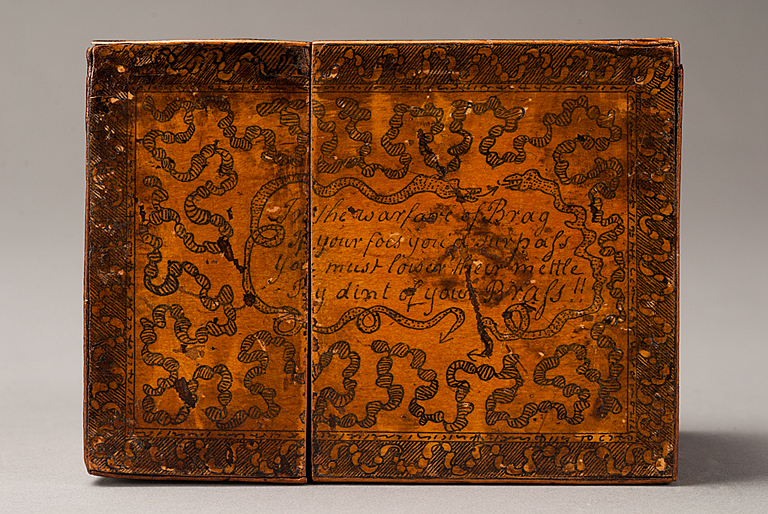 In the warfare of Brag
If your foes you'd surpass
You must lower their mettle
By dint of your Brass!!